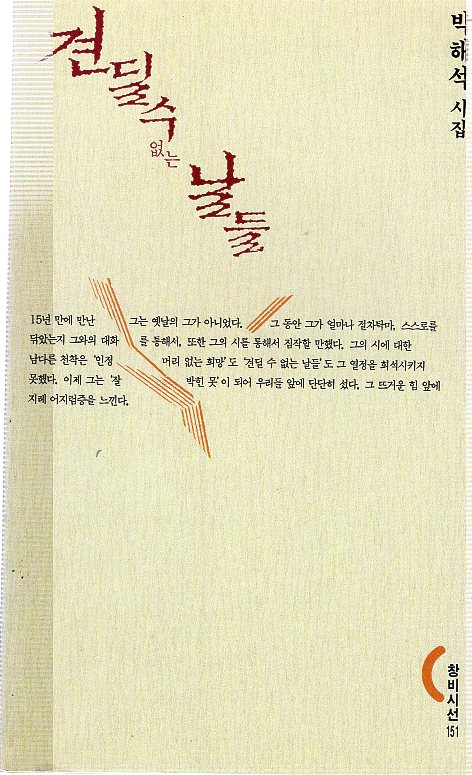 견딜 수
없는
날들
박해석 시집
15년 만에 만난 그는 옛날의 그가 아니었다. 그 동안 그가 얼마나 절차탁마, 스스로를
닦았는지 그와의 대화를 통해서, 또한 그의 시를 통해서 짐작할 만했다. 그의 시에 대한
남다른 천착은 '인정머리 없는 희망'도 '견딜 수 없는 날들'도 그 열정을 희석시키지
못했다. 이제 그는 '잘 박힌 못'이 되어 우리들 앞에 단단히 섰다. 그 뜨거운 힘 앞에
지레 어지럼증을 느낀다.
창비시선
151